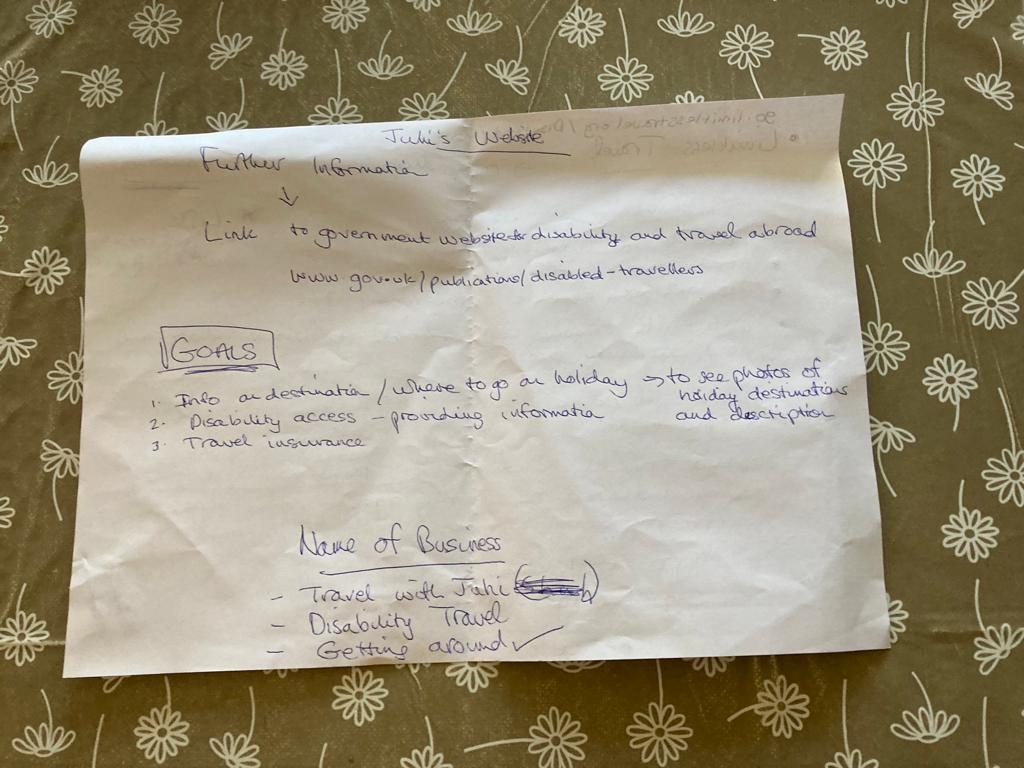 Juhi's Website
Further Information
↓
Link to government website for disability and travel abroad
www.gov.uk/publications/disabled-travellers
GOALS
1. Info on destination / where to go on holiday → to see photos of
holiday destinations
and description
2. Disability access - providing information
3. Travel insurance
Name of Business
- Travel with Juhi
- Disability Travel
- Getting around ✓
Limitless Travel